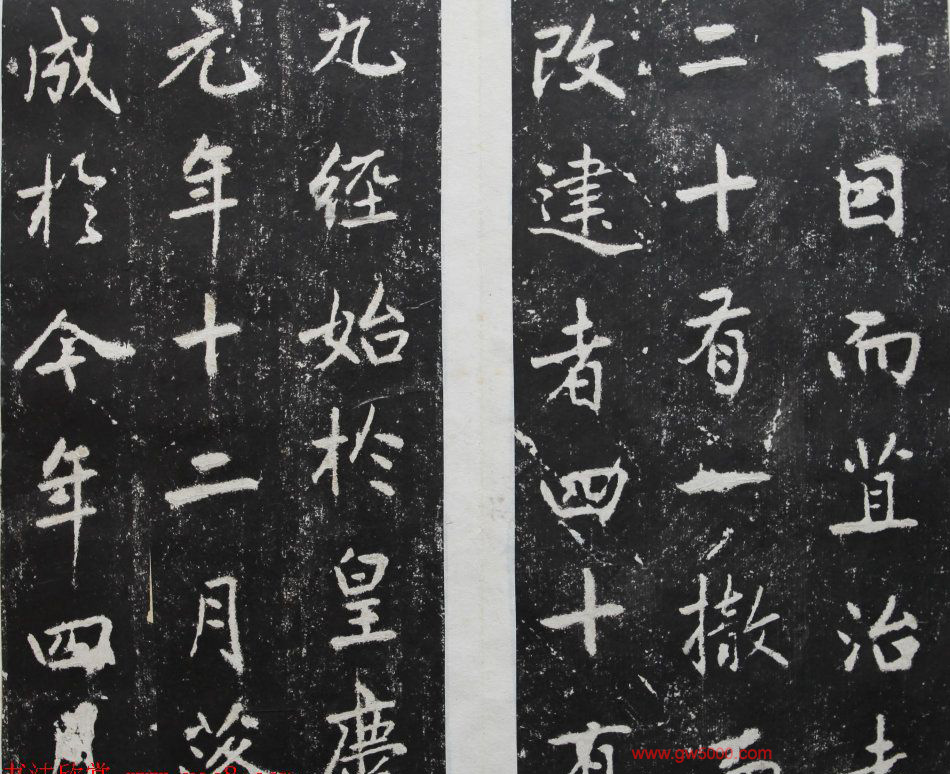 十因而苴治者
二十有一撤而
改建者四十有
九經始於皇慶
元年十二月落
成於今年四月
www.gw5000.com
书法欣赏